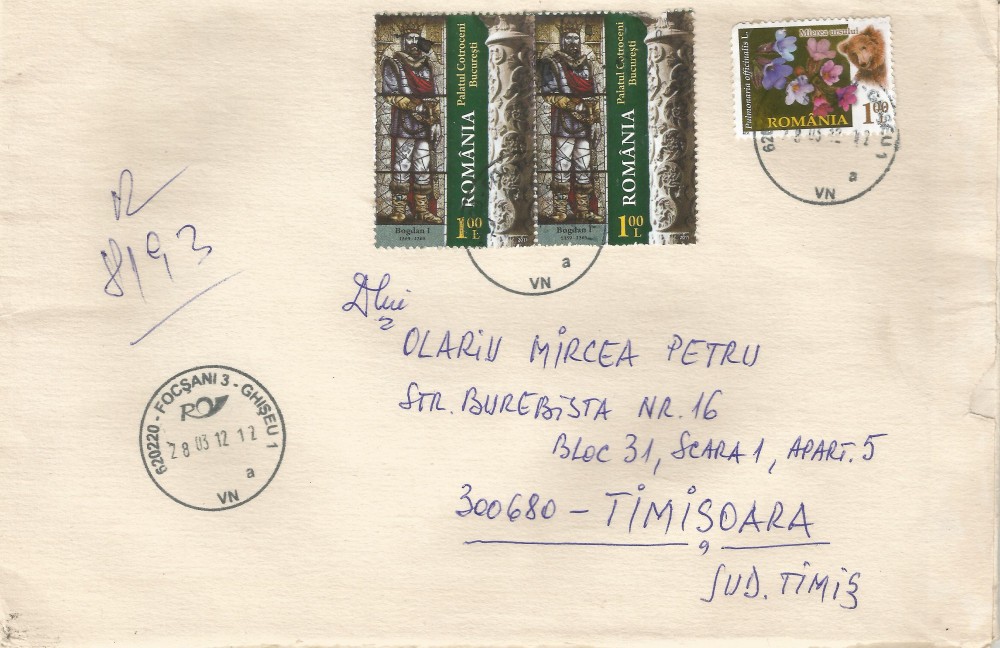 Palatul Cotroceni
București
ROMÂNIA
1.00 L
Bogdan I
Palatul Cotroceni
București
ROMÂNIA
1.00 L
Bogdan I
Pulmonaria officinalis L.
Mierea ursului
ROMÂNIA
1.00
28 03 12 12
a
VN
a
VN
R
8193
Dlui
OLARIU MIRCEA PETRU
STR. BUREBISTA NR. 16
BLOC 31, SCARA 1, APART. 5
300680 - TIMIȘOARA
JUD. TIMIȘ
620220 - FOCȘANI 3 - GHIȘEU 1
28 03 12 12
a
VN